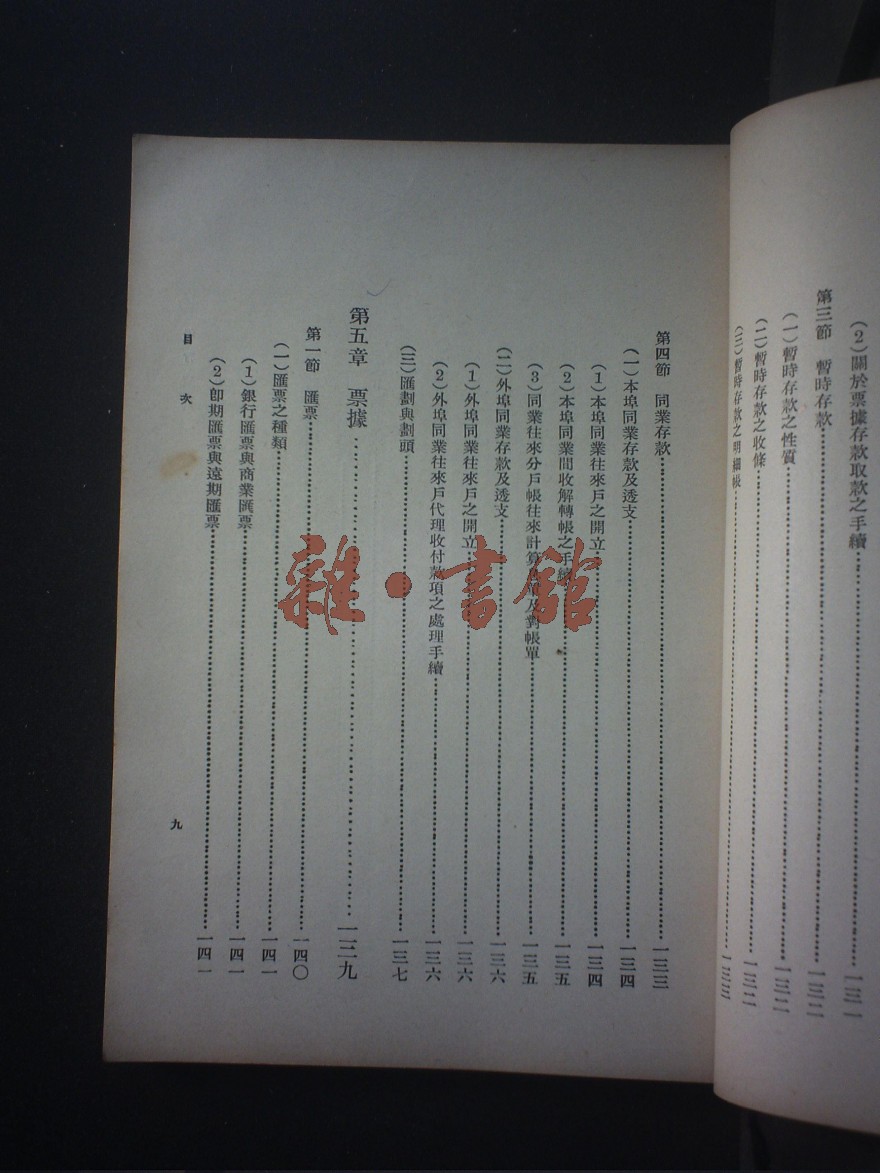 (2)關於票據存款取款之手續……一三一
第三節 暫時存款……一三二
(一)暫時存款之性質……一三二
(二)暫時存款之收條……一三二
(三)暫時存款之明細帳……一三三
第四節 同業存款……一三三
(一)本埠同業存款及透支……一三四
(1)本埠同業往來戶之開立……一三四
(2)本埠同業間收解轉帳之手續……一三五
(3)同業往來分戶帳往來計算 及對帳單……一三五
(二)外埠同業存款及透支……一三六
(1)外埠同業往來戶之開立……一三六
(2)外埠同業往來戶代理收付款項之處理手續……一三六
(三)匯劃與劃頭……一三七
第五章 票據……一三九
第一節 匯票……一四〇
(一)匯票之種類……一四一
(1)銀行匯票與商業匯票……一四一
(2)卽期匯票與遠期匯票……一四一
目 次
九
雜·書館